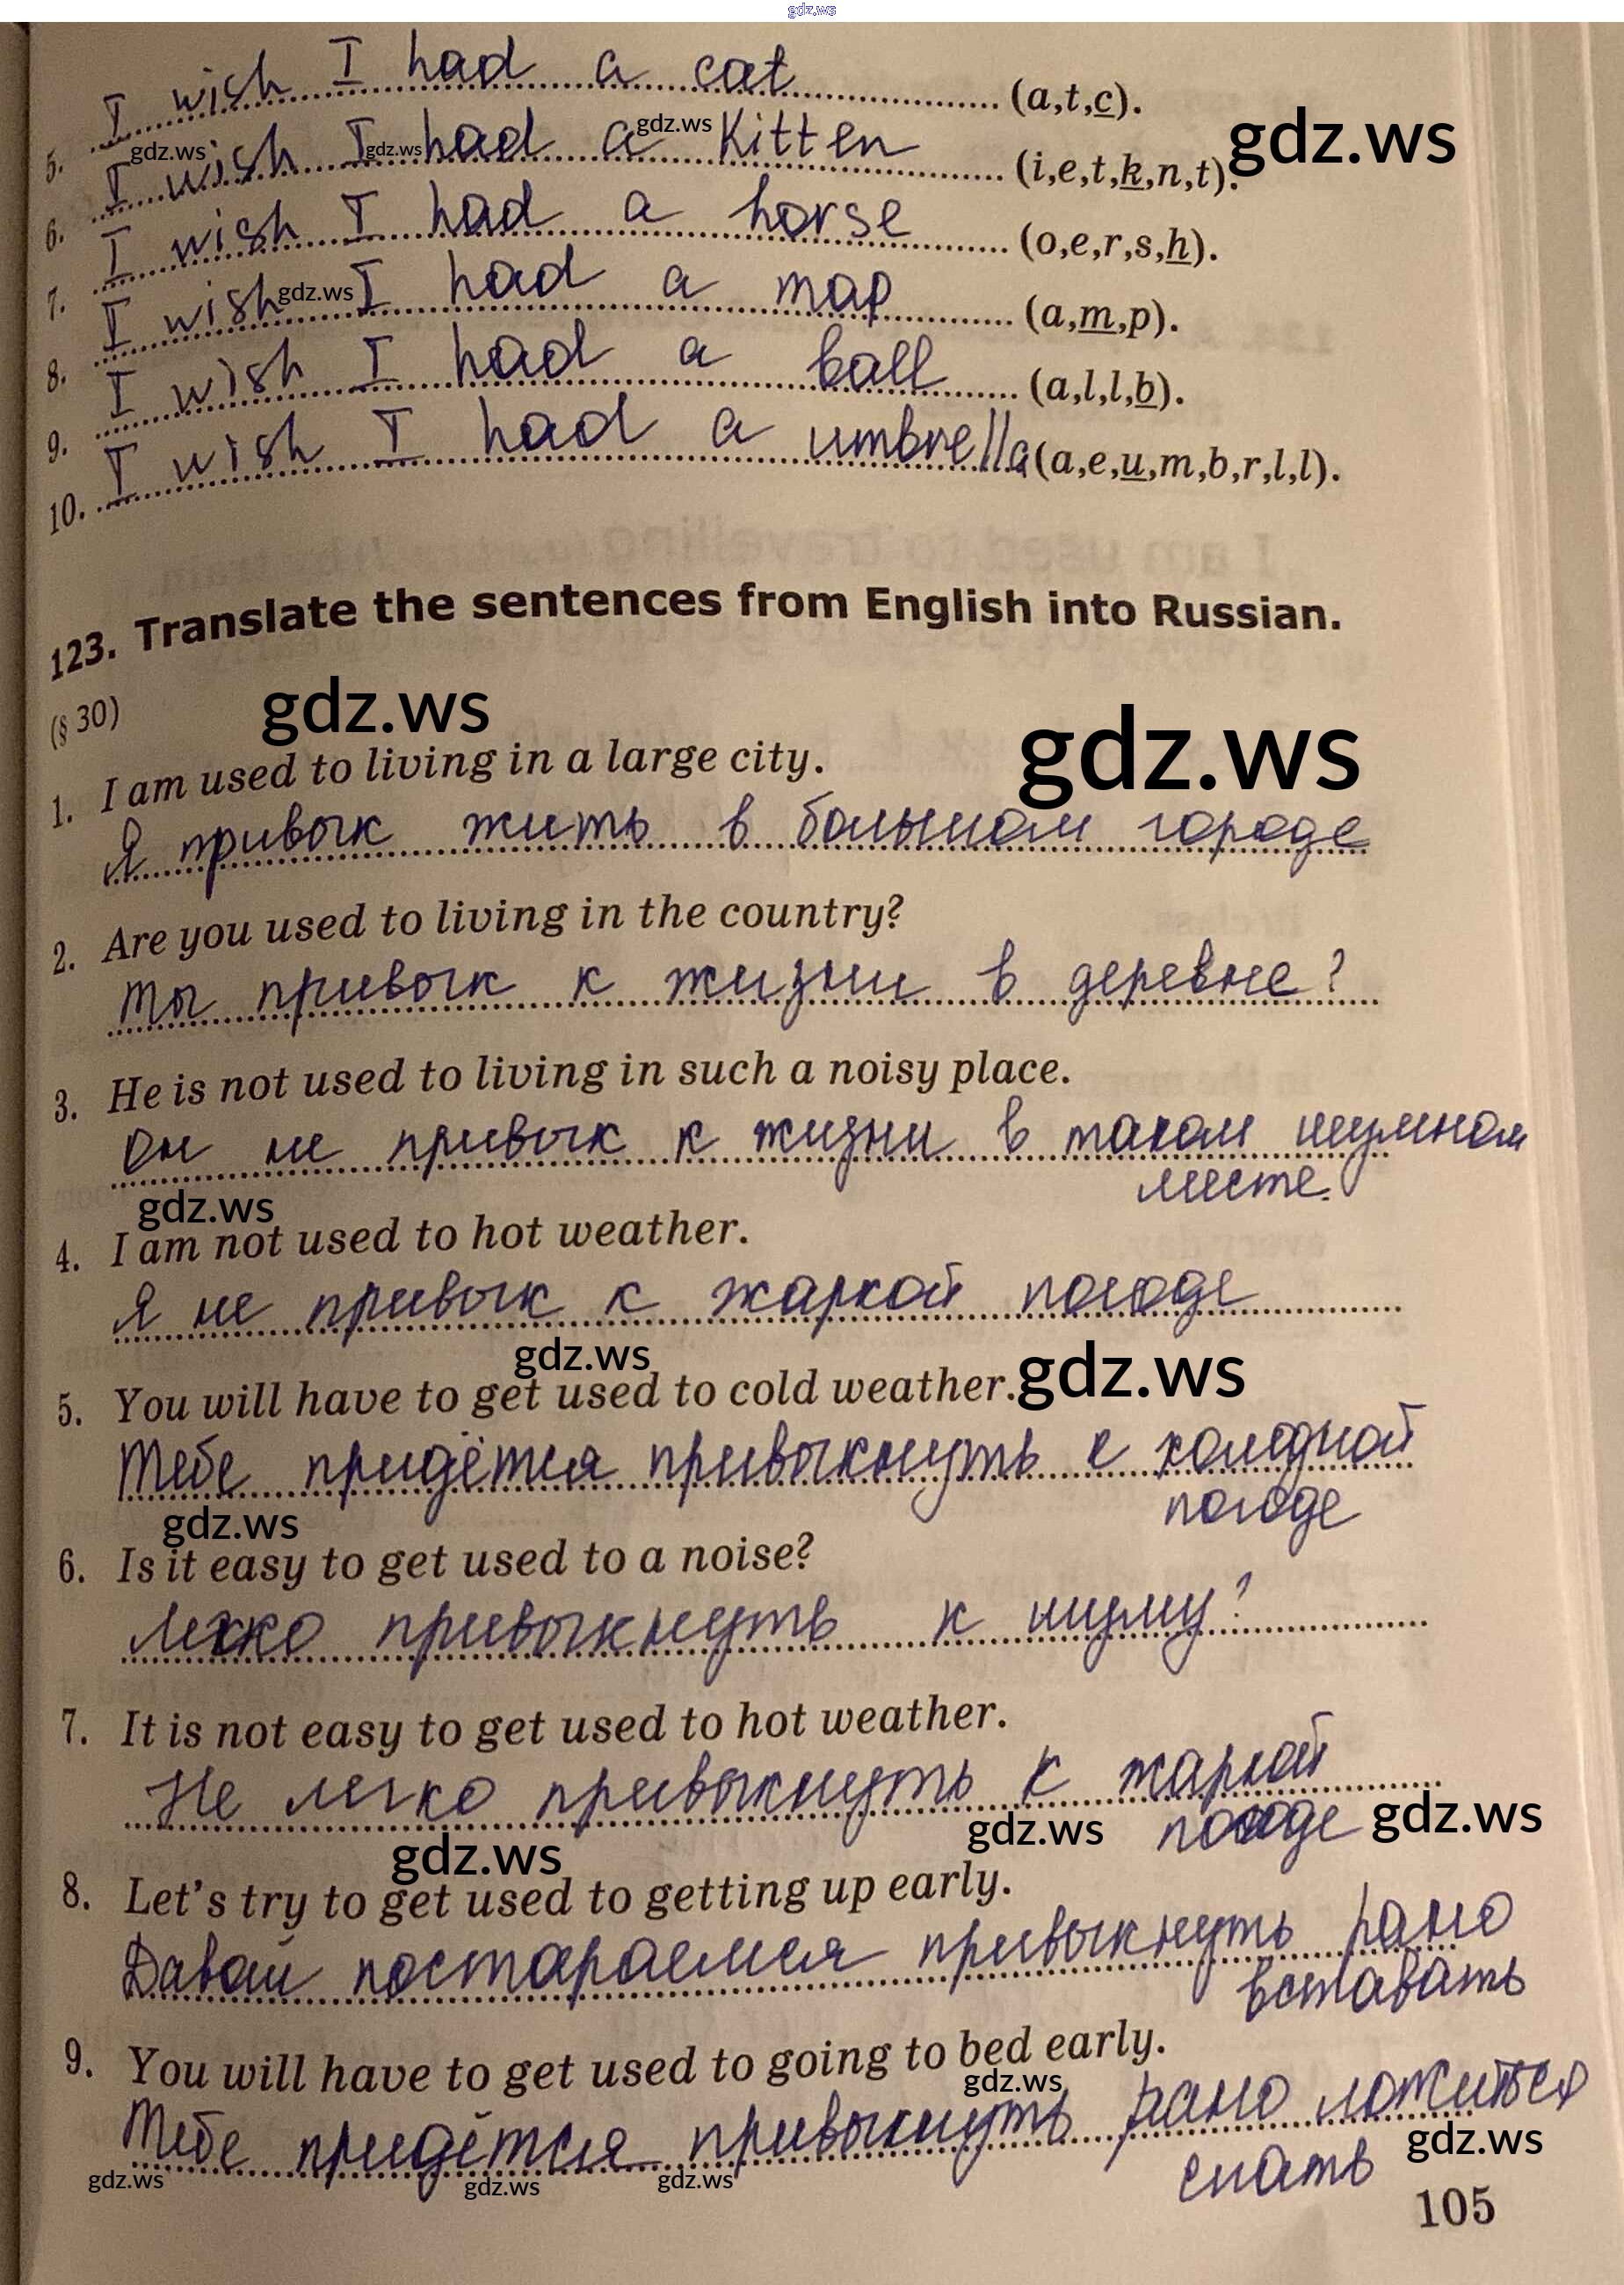 gdz.ws
5. I wish I had a cat (a,t,c).
gdz.ws gdz.ws gdz.ws gdz.ws
6. I wish I had a Kitten (i,e,t,k,n,t).
7. I wish I had a horse (o,e,r,s,h).
gdz.ws
8. I wish I had a map (a,m,p).
9. I wish I had a ball (a,l,l,b).
10. I wish I had a umbrella (a,e,u,m,b,r,l,l).
123. Translate the sentences from English into Russian.
(§ 30)
gdz.ws gdz.ws
1. I am used to living in a large city.
Я привык жить в большом городе
2. Are you used to living in the country?
Ты привык к жизни в деревне?
3. He is not used to living in such a noisy place.
Он не привык к жизни в таком шумном
месте.
gdz.ws
4. I am not used to hot weather.
Я не привык к жаркой погоде
gdz.ws gdz.ws
5. You will have to get used to cold weather.
Тебе придётся привыкнуть к холодной
погоде
gdz.ws
6. Is it easy to get used to a noise?
Легко привыкнуть к шуму?
7. It is not easy to get used to hot weather.
Не легко привыкнуть к жаркой
погоде
gdz.ws gdz.ws gdz.ws
8. Let's try to get used to getting up early.
Давай постараемся привыкнуть рано
вставать
9. You will have to get used to going to bed early.
gdz.ws
Тебе придётся привыкнуть рано ложиться
спать
gdz.ws gdz.ws gdz.ws gdz.ws
105